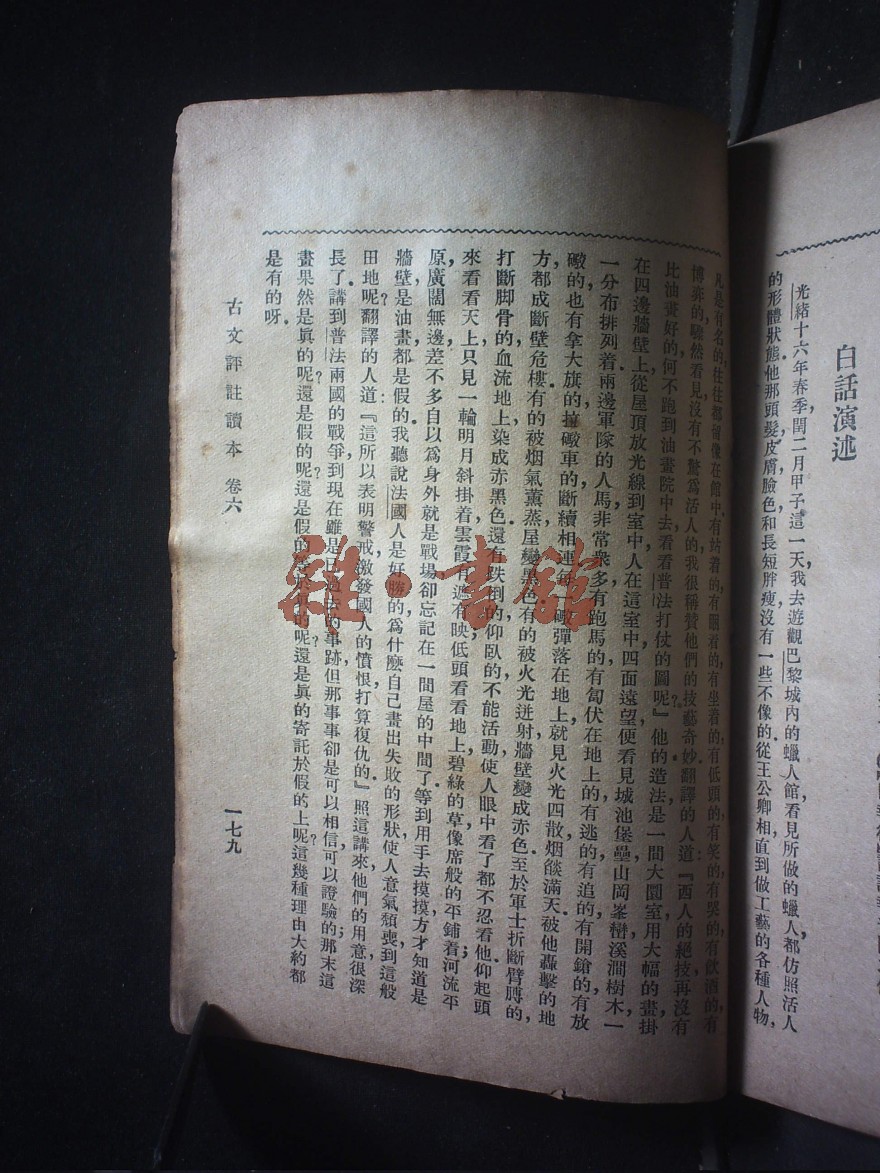 白話演述
光緒十六年春季閏二月甲子這一天,我去遊觀巴黎城內的蠟人館,看見所做的蠟人,都仿照活人
的形體狀態,他那頭髮皮膚臉色和長短胖瘦沒有一些不像的.從王公卿相,直到做工藝的各種人物,
凡是有名的,往往都留像在館中.有站着的,有眠着的,有坐着的,有低頭的,有笑的,有哭的,有飲酒的,有
博弈的,驟然看見,沒有不驚爲活人的.我很稱贊他們的技藝奇妙.翻譯的人道:『西人的絕技再沒有
比油畫好的,何不跑到油畫院中去看看普法打仗的圖呢?』他的造法,是一間大圜室,用大幅的畫掛
在四邊牆壁上,從屋頂放光線到室中,人在這室中四面遠望,便看見城池堡壘,山岡峯巒,溪澗樹木,一
一分布排列着,兩邊軍隊的人馬非常衆多,有跑馬的,有匐伏在地上的,有逃的,有追的,有開鎗的,有放
礮的,也有拿大旗的,拉礮車的,斷續相連.每一礮彈落在地上,就見火光四散,烟燄滿天,被他轟擊的地
方,都成斷壁危樓,有的被烟氣薰蒸,屋變黑色,有的被火光迸射,牆壁變成赤色.至於軍士折斷臂膊的,
打斷脚骨的,血流地上,染成赤黑色,還有跌倒的,仰臥的,不能活動,使人眼中看了都不忍看他.仰起頭
來看看天上,只見一輪明月斜掛着,雲霞有遮有映,低頭看看地上,碧綠的草像席般的平鋪着,河流平
原,廣闊無邊,差不多自以爲身外就是戰場,卻忘記在一間屋的中間了.等到用手去摸摸,方才知道是
牆壁,是油畫,都是假的.我聽說法國人是好勝的,爲什麼自己畫出失敗的形狀,使人意氣頹喪到這般
田地呢?翻譯的人道:『這所以表明警戒,激發國人的憤恨,打算復仇的.』照這講來,他們的用意很深
長了.講到普法兩國的戰爭,到現在雖是已過去的事跡,但那事事卻是可以相信,可以證驗的;那末這
畫果然是眞的呢?還是假的呢?還是假的寄託於眞的呢?還是眞的寄託於假的上呢?這幾種理由大約都
是有的呀.
古文評註讀本 卷六
一七九
雜·書館